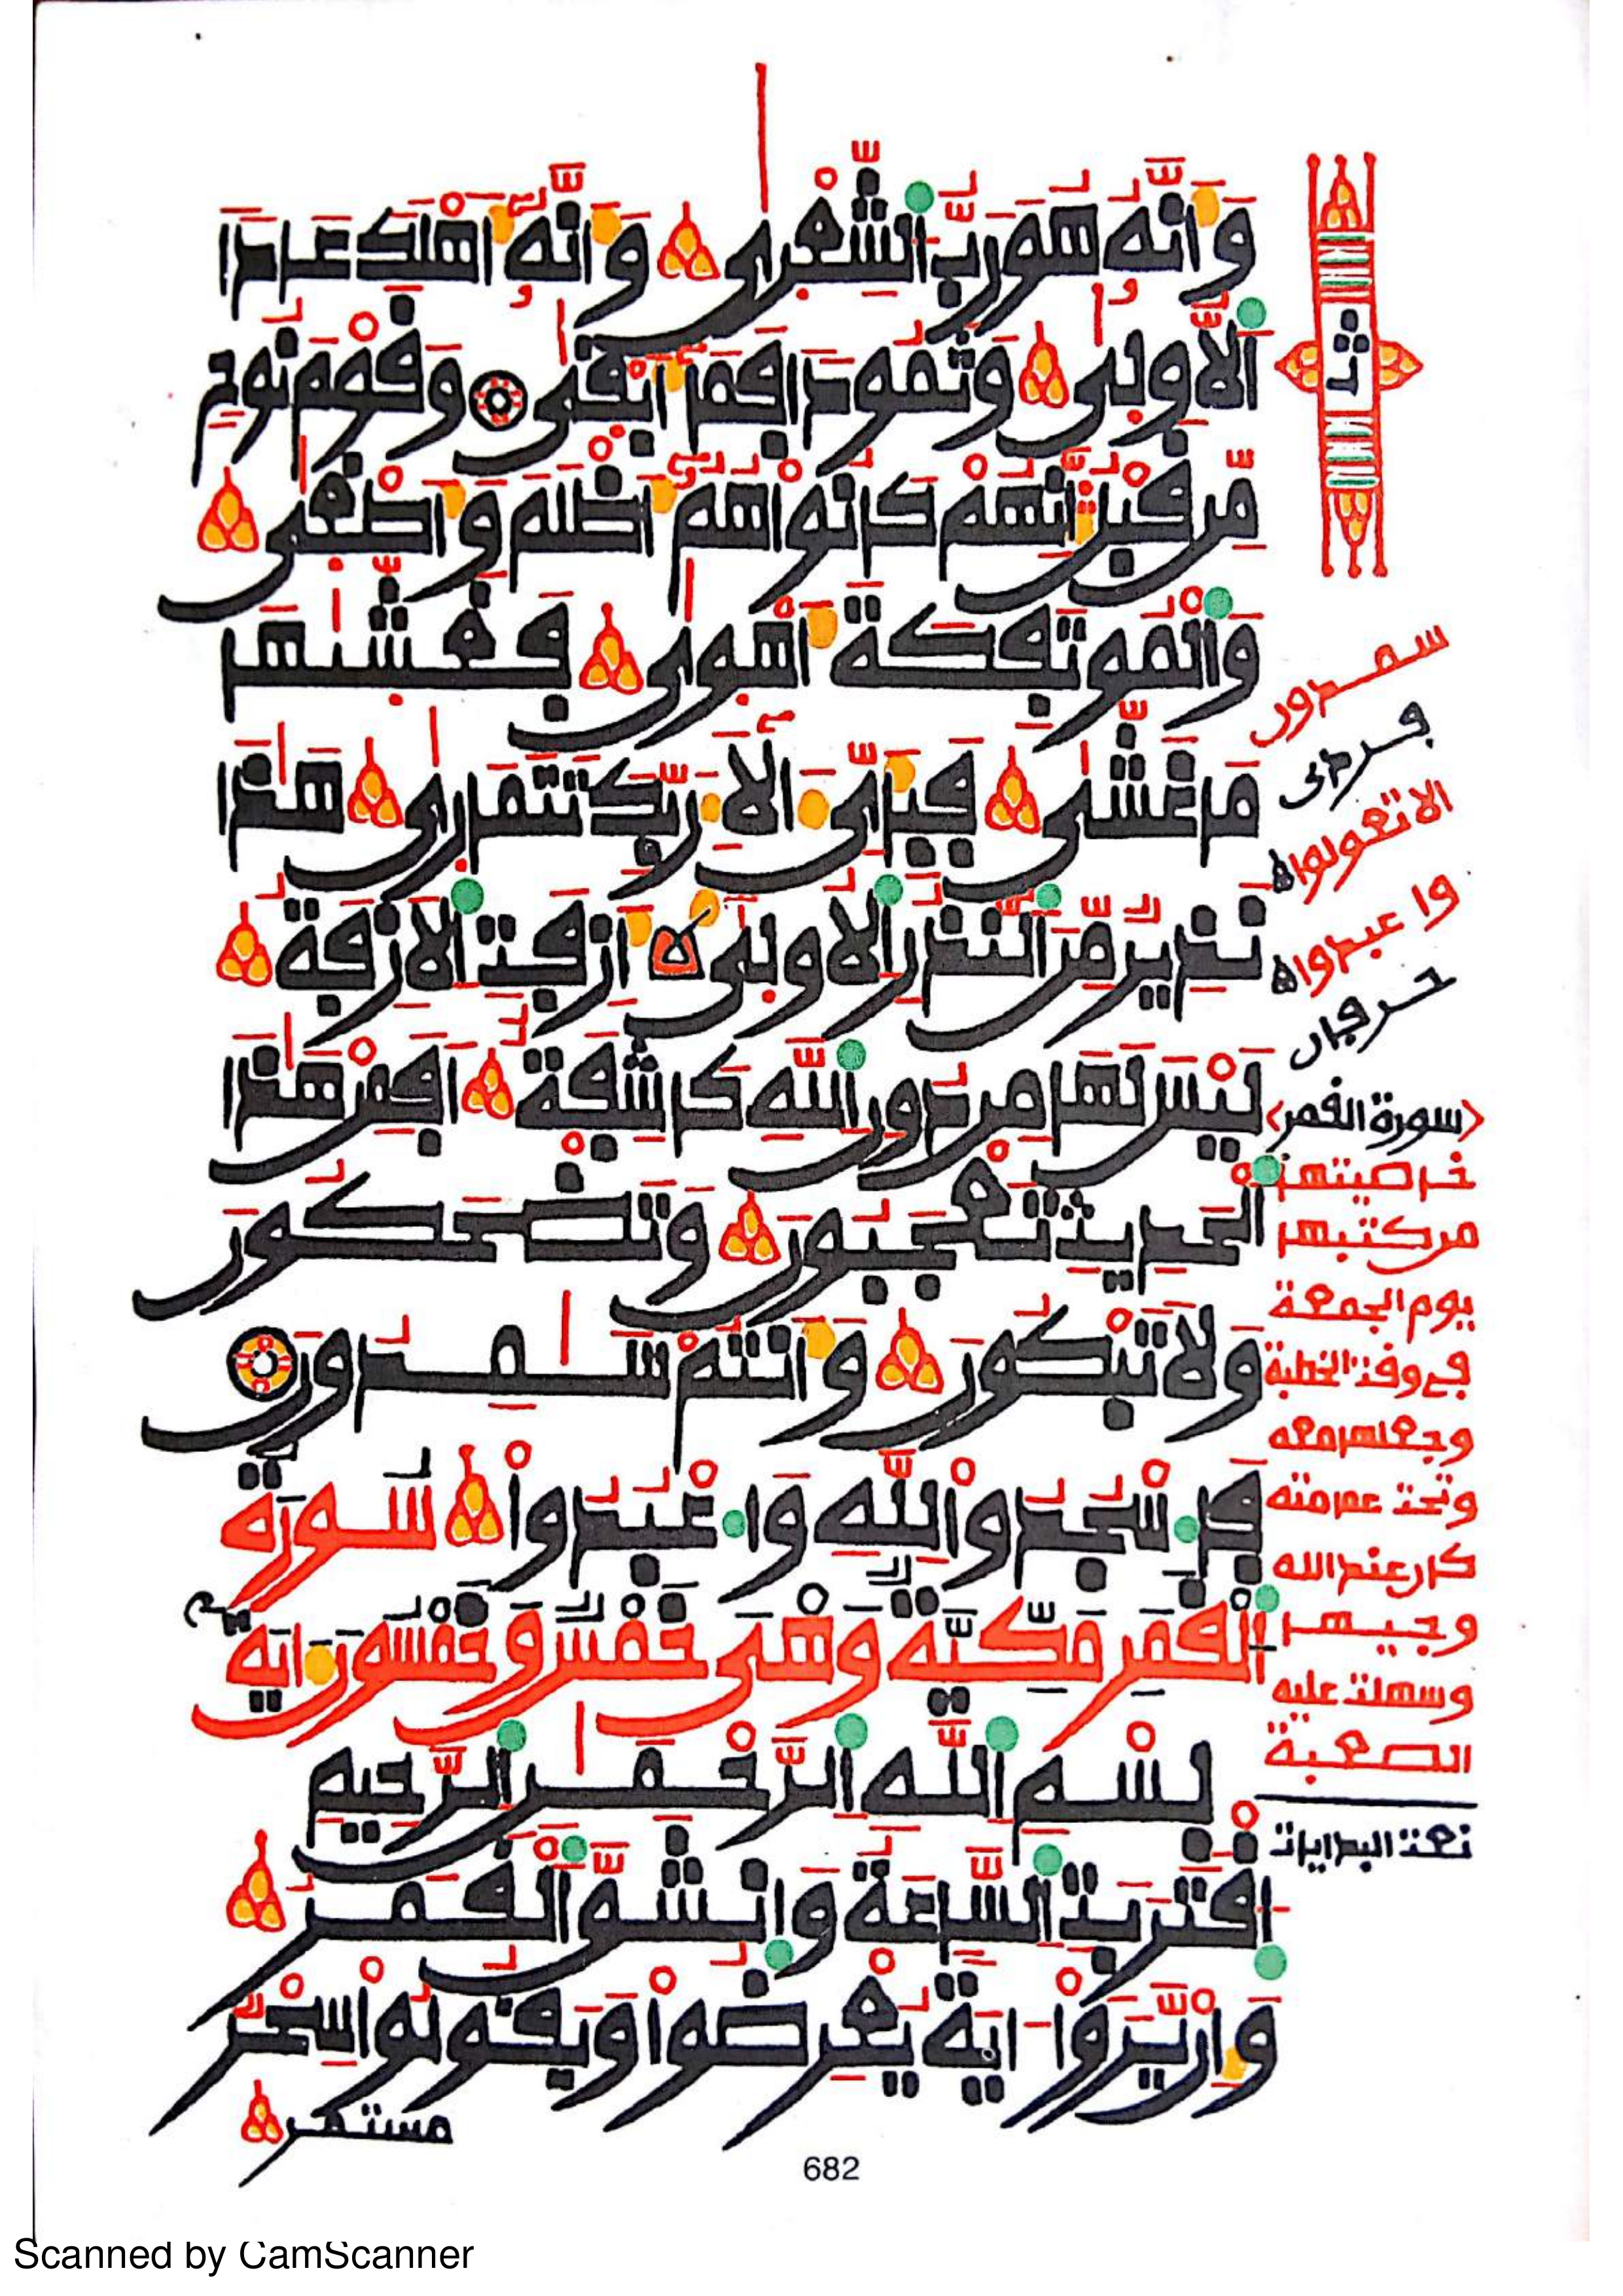 وَأَنَّهُ هُوَ رَبُّ الشِّعْرَى وَأَنَّهُ أَهْلَكَ عَادًا
الْأُولَى وَثَمُودَا فَمَا أَبْقَى وَقَوْمَ نُوحٍ
مِّن قَبْلُ إِنَّهُمْ كَانُوا هُمْ أَظْلَمَ وَأَطْغَى
وَالْمُوتَفِكَةَ أَهْوَى فَغَشَّىٰهَا
مَا غَشَّى فَبِأَيِّ ءَالَآءِ رَبِّكَ تَتَمَارَى هَٰذَا
نَذِيرٌ مِّنَ النُّذُرِ الْأُولَى أَزِفَتِ الْأَزِفَةُ
لَيْسَ لَهَا مِن دُونِ اللَّهِ كَاشِفَةٌ أَفَمِنْ هَٰذَا
الْحَدِيثِ تَعْجَبُونَ وَتَضْحَكُونَ
وَلَا تَبْكُونَ وَأَنتُمْ سَٰمِدُونَ
فَاسْجُدُوا لِلَّهِ وَاعْبُدُوا سُورَةُ
الْقَمَرِ مَكِّيَّةٌ وَهْيَ خَمْسٌ وَخَمْسُونَ ءَايَةً
بِسْمِ اللَّهِ الرَّحْمَٰنِ الرَّحِيمِ
اقْتَرَبَتِ السَّاعَةُ وَانشَقَّ الْقَمَرُ
وَإِن يَّرَوْا ءَايَةً يُعْرِضُوا وَيَقُولُوا سِحْرٌ
مستمر
ثمن
سمدون
فردى
الا تعولوا ه
واعبدوا ه
حرفان
﴿سورة القمر﴾
خاصيتها
من كتبها
يوم الجمعة
في وقت الخطبة
وجعلها معه
وتحت عمامته
كان عند الله
وجيها
وسهلت عليه
الصعبة
نعت البدايات
682
Scanned by CamScanner